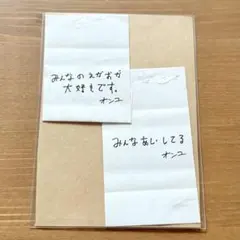 みんなのえがおが
大好きです。
オンユ
みんなあいしてる
オンユ